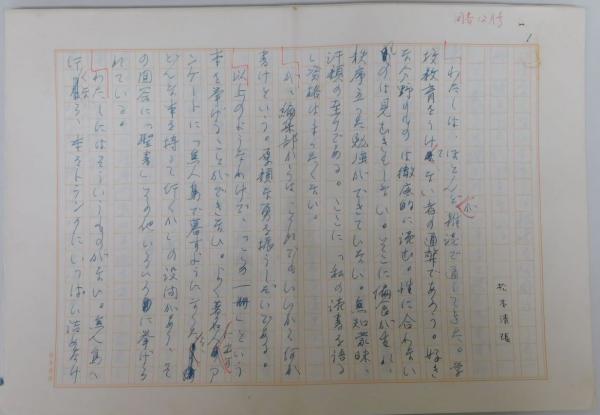 図書12月号
1
松本清張
わたしは、ほとんどが雑読で通してきた。学
校教育をうけてない者の通弊であろう。好き
な分野のものは徹底的に読む。性に合わない
ものは見むきもしない。そこに偏向が生れ、
秩序立った勉強ができていない。無知蒙昧、
汗顔の至りである。ここに「私の読書を語る
資格はまったくない。
だが、編集部からは、それでもいいから何か
書けという。厚顔な勇を揮うしだいである。
以上のようなわけで、「この一冊」という
本を挙げることができない。よく著名人のア
ンケートに「無人島で暮すようになったら
どんな本を持って行くか」の設問があり、そ
の回答に「聖書」その他いろいろに挙げら
れている。
わたしにはそういうものがない。無人島へ
行くなら、本をトランクにいっぱい詰め